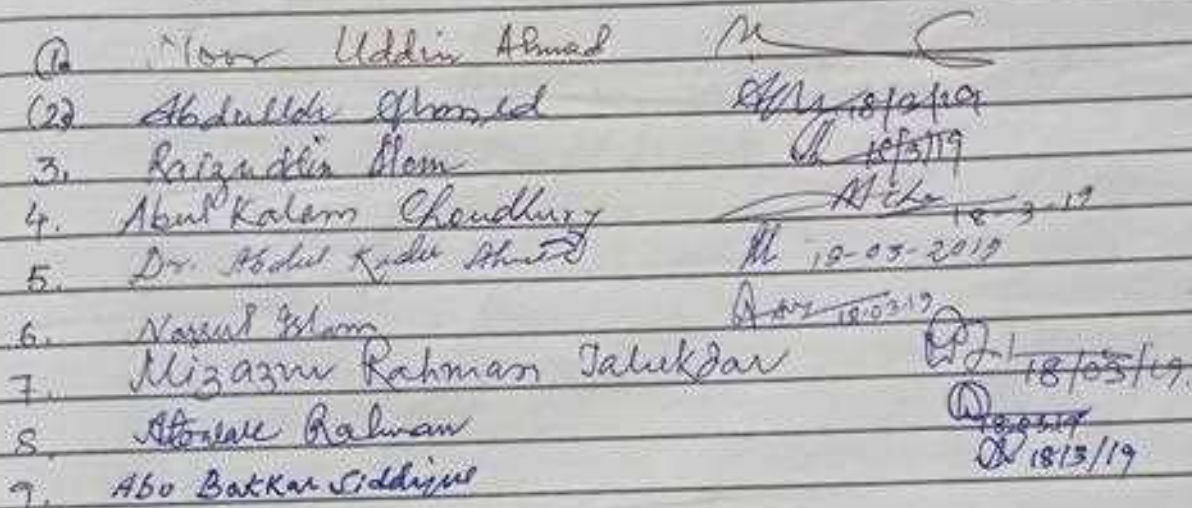 Noor Uddin Ahmad
(2) Abdullah Ahmed 18/3/19
3. Raizuddin Alom 18/3/19
4. Abul Kalam Choudhury 18-3-19
5. Dr. Abdul Kadir Ahmed 18-03-2019
6. Nazrul Islam 18.03.19
7. Rahman Talukdar 18/03/19
8. Rahman 18.03.19
9. Abo Bakkar Siddique 18/3/19